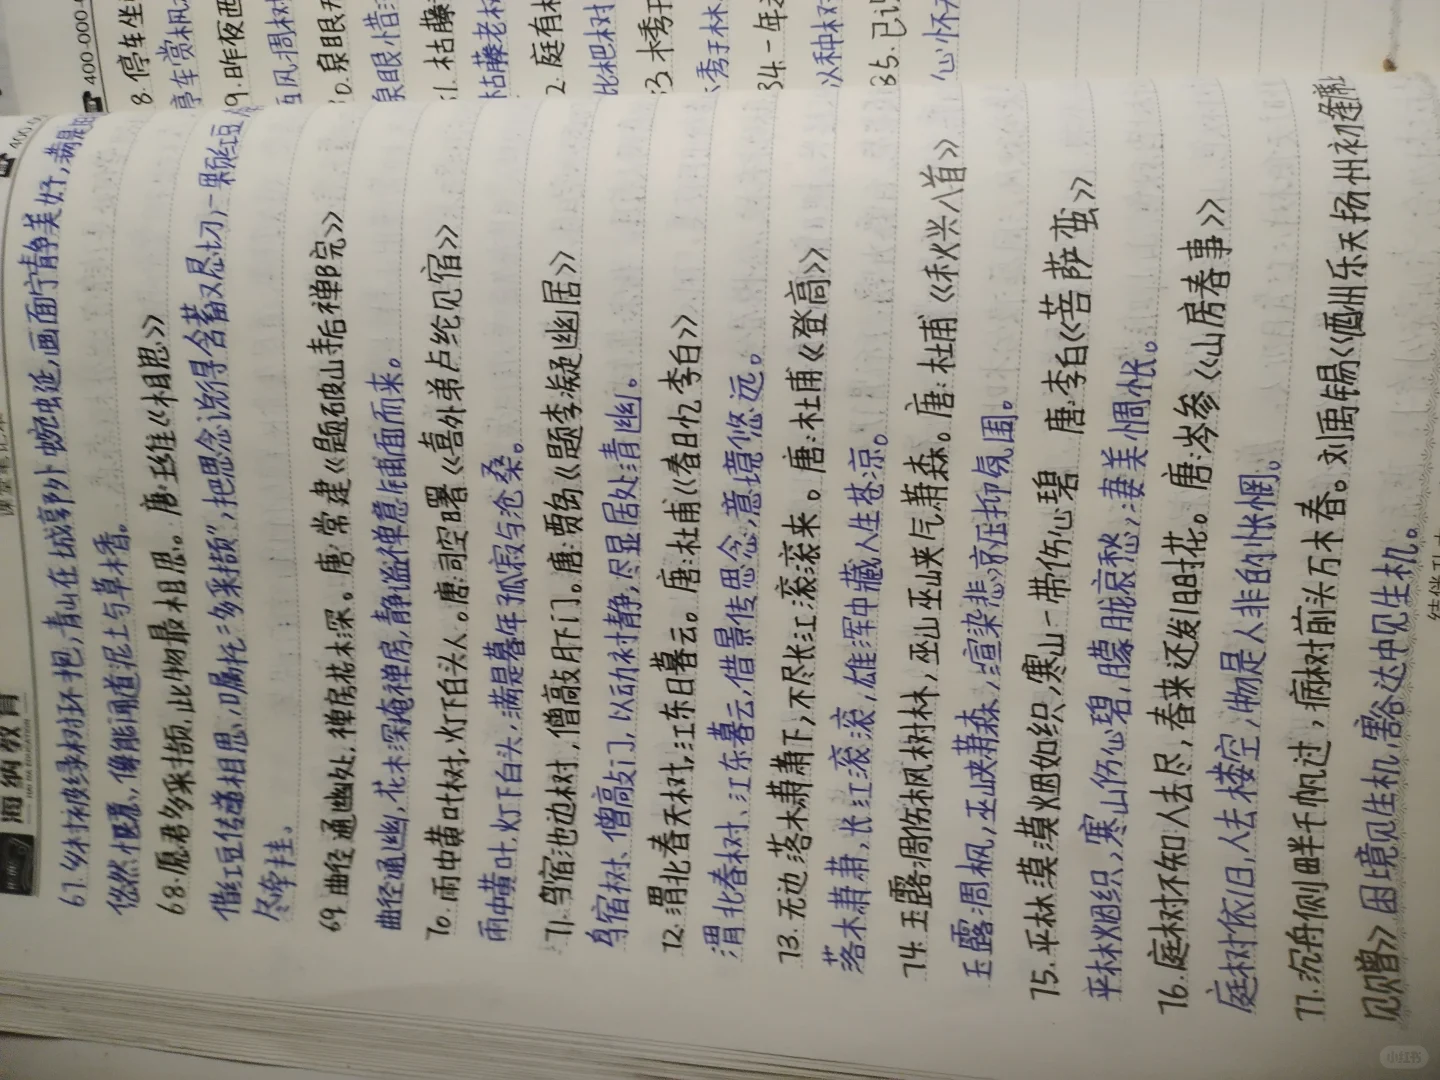 海纳教育
67.乡村被绿树环抱,青山在城郭外蜿蜒延,画面宁静美好,满是田
悠然惬意,像能闻道泥土与草木香。
68.愿君多采撷,此物最相思。唐:王维《相思》
借红豆传递相思,叮嘱托“多采撷”,把思念说得含蓄又恳切,一颗红豆
尽牵挂。
69.曲径通幽处,禅房花木深。唐 常建《题破山寺后禅院》
曲径通幽,花木深掩禅房,静谧禅意铺面而来。
70.雨中黄叶树,灯下白头人。唐:司空曙《喜外弟卢纶见宿》
雨中黄叶,灯下白头,满是暮年孤寂与沧桑。
71.鸟宿池边树,僧敲月下门。唐:贾岛《题李凝幽居》
鸟宿树、僧敲门,以动衬静,尽显居处清幽。
72.渭北春天树,江东日暮云。唐:杜甫《春日忆李白》
渭北春树、江东暮云,借景传思念,意境悠远。
73.无边落木萧萧下,不尽长江滚滚来。唐:杜甫《登高》
落木萧萧,长江滚滚,雄浑中藏人生苍凉。
74.玉露凋伤枫树林,巫山巫峡气萧森。唐:杜甫《秋兴八首》
玉露凋枫,巫峡萧森,渲染悲凉压抑氛围。
75.平林漠漠烟如织,寒山一带伤心碧 唐:李白《菩萨蛮》
平林烟织,寒山伤心碧,朦胧哀愁,凄美惆怅。
76.庭树不知人去尽,春来还发旧时花。唐:岑参《山房春事》
庭树依旧,人去楼空,物是人非的怅惘。
77.沉舟侧畔千帆过,病树前头万木春。刘禹锡《酒州乐天扬州初逢席
见赠》困境见生机,豁达中见生机。
8.停车坐
停车赏枫
9.昨夜西
西风凋树
0.泉眼无
泉眼惜
31.枯藤
枯藤老树
2.庭有枇
枇杷树
33.木秀于
木秀于林
34.一年
以种树
35.已识
心怀
400-000-
小红书